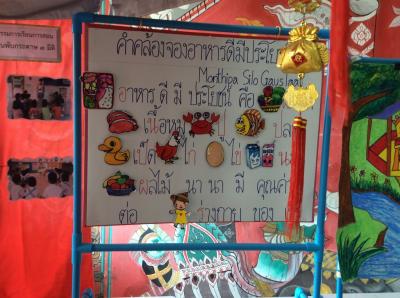 กรรมการเรียนการสอน
คำคล้องจองอาหารดีมีประโย
อาหาร ดี มี ประโยชน์ คือ
เนื้อหมู ปู ปล
เป็ด ไก่ ไข่ น
ผลไม้ นานา มี คุณค่
ต่อ ร่างกาย ของ